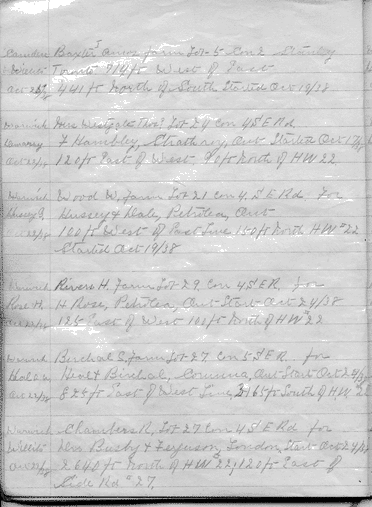 Camden Baxter Amos farm Lot-5 Con 2 Stanley
Willits Toronto 914 ft West of East
Oct 25/38 441 ft North of South Started Oct 19/38
Warwick Mrs Westgate Thos! Lot 29 Con 4 S E Rd
F Hambley, Strathroy, Ont Started Oct 17/38
120 ft East of West 90 ft North of HW 22
Warwick Wood W. Farm Lot 21 Con 4. S E Rd For
Hussey & Dale, Petrolea, Ont
100 ft West of East Line 150 ft North HW 22
Started Oct 19/38
Warwick Rivers H. Farm Lot 29 Con 4 S E R for
Rose H H Rose, Petrolea, Ont Start Oct 24/38
125 East of West 100 ft North of HW 22
Warwick Birchal S, farm Lot 27 Con 5 S E R for
& Birchal, Corunna, Ont Start Oct 24/38
825 ft East of West Line, 165 ft South of HW 22
Warwick Chambers R. Lot 27 Con 4 S E Rd for
Willits Busby & Ferguson, London, Start Oct 24/38
2640 ft North of HW 22, 120 ft East of
Side Rd 27.